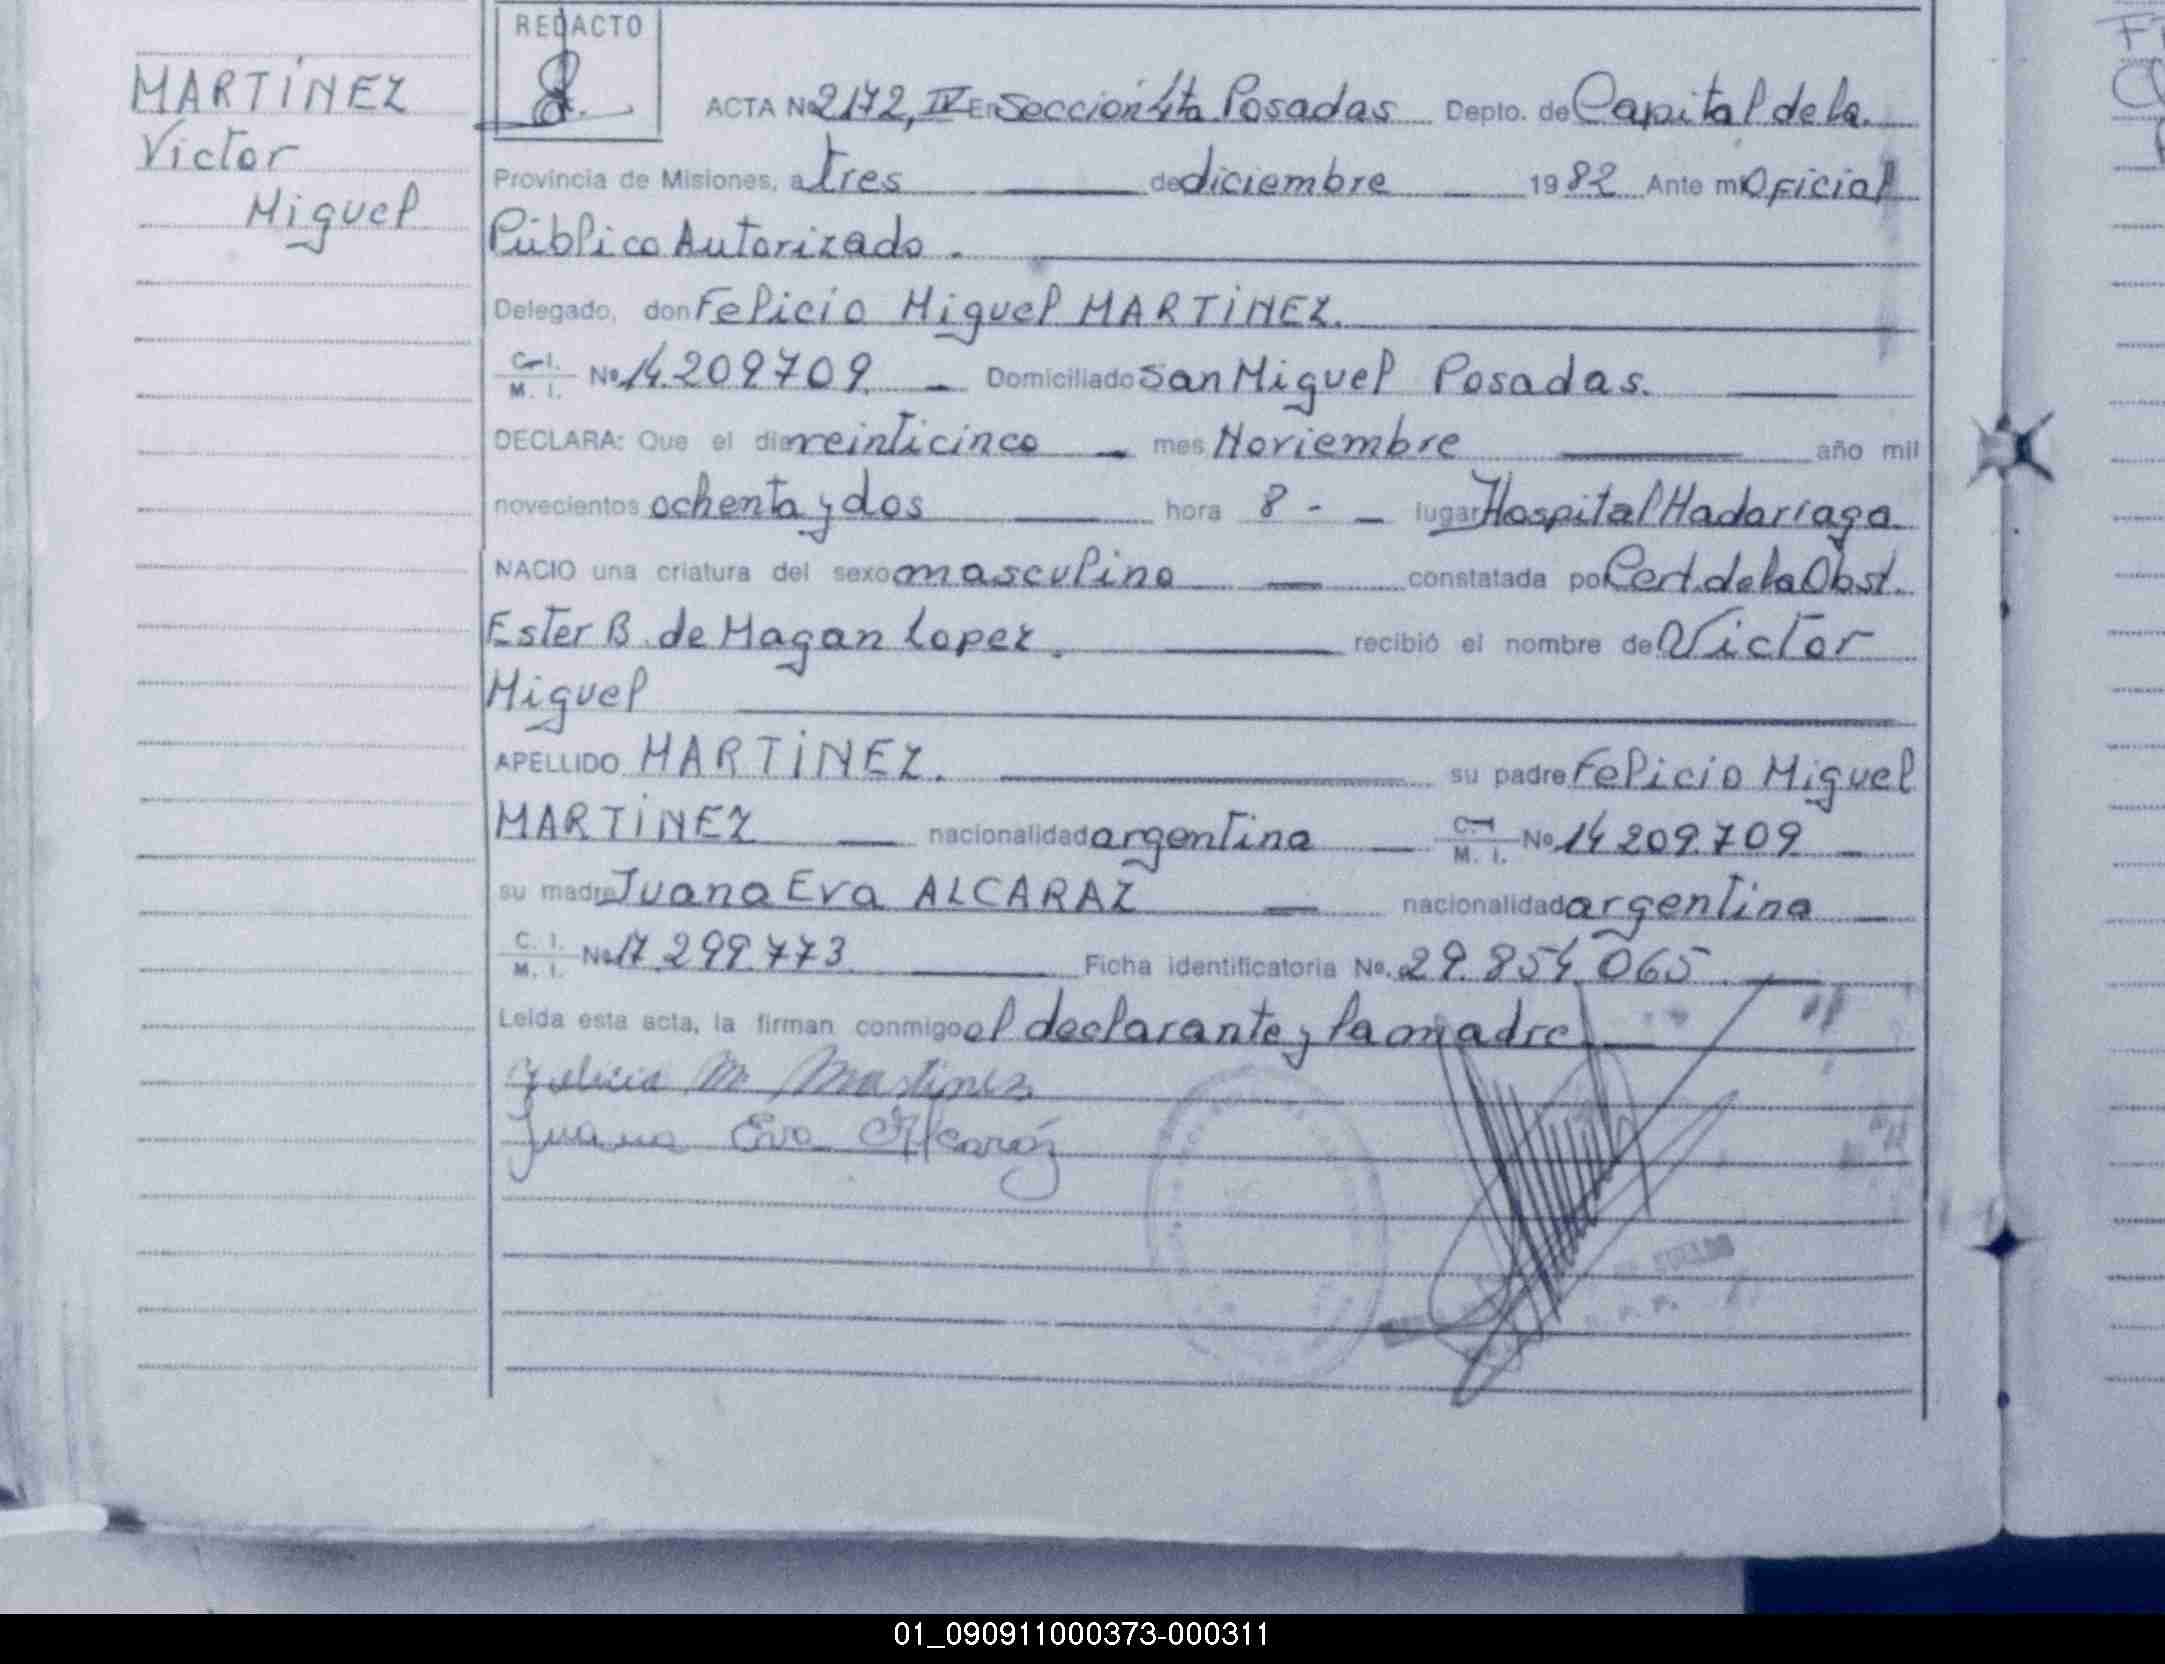 MARTÍNEZ
Victor
Miguel
REDACTO
ACTA Nº 2172, IV En Sección 4ta Posadas Depto. de Capital de la
Provincia de Misiones, a tres de diciembre 1982 Ante mi Oficial
Público Autorizado.
Delegado, don Felicio Miguel MARTÍNEZ.
C. I. M. I. Nº 14.209709 Domiciliado San Miguel Posadas.
DECLARA: Que el dia veinticinco mes Noviembre año mil
novecientos ochenta y dos hora 8 - lugar Hospital Madariaga
NACIO una criatura del sexo masculino constatada por Cert. de la Obst.
Ester B. de Magan Lopez. recibió el nombre de Victor
Miguel
APELLIDO MARTÍNEZ. su padre Felicio Miguel
MARTÍNEZ nacionalidad argentina C. I. M. I. Nº 14 209.709
su madre Juana Eva ALCARAZ nacionalidad argentina
C. I. M. I. Nº 17 299.773 Ficha identificatoria Nº. 29.854 065
Leída esta acta, la firman conmigo el declarante y la madre
Felicio M. Martinez
Juana Eva Alcaráz
01_090911000373-000311